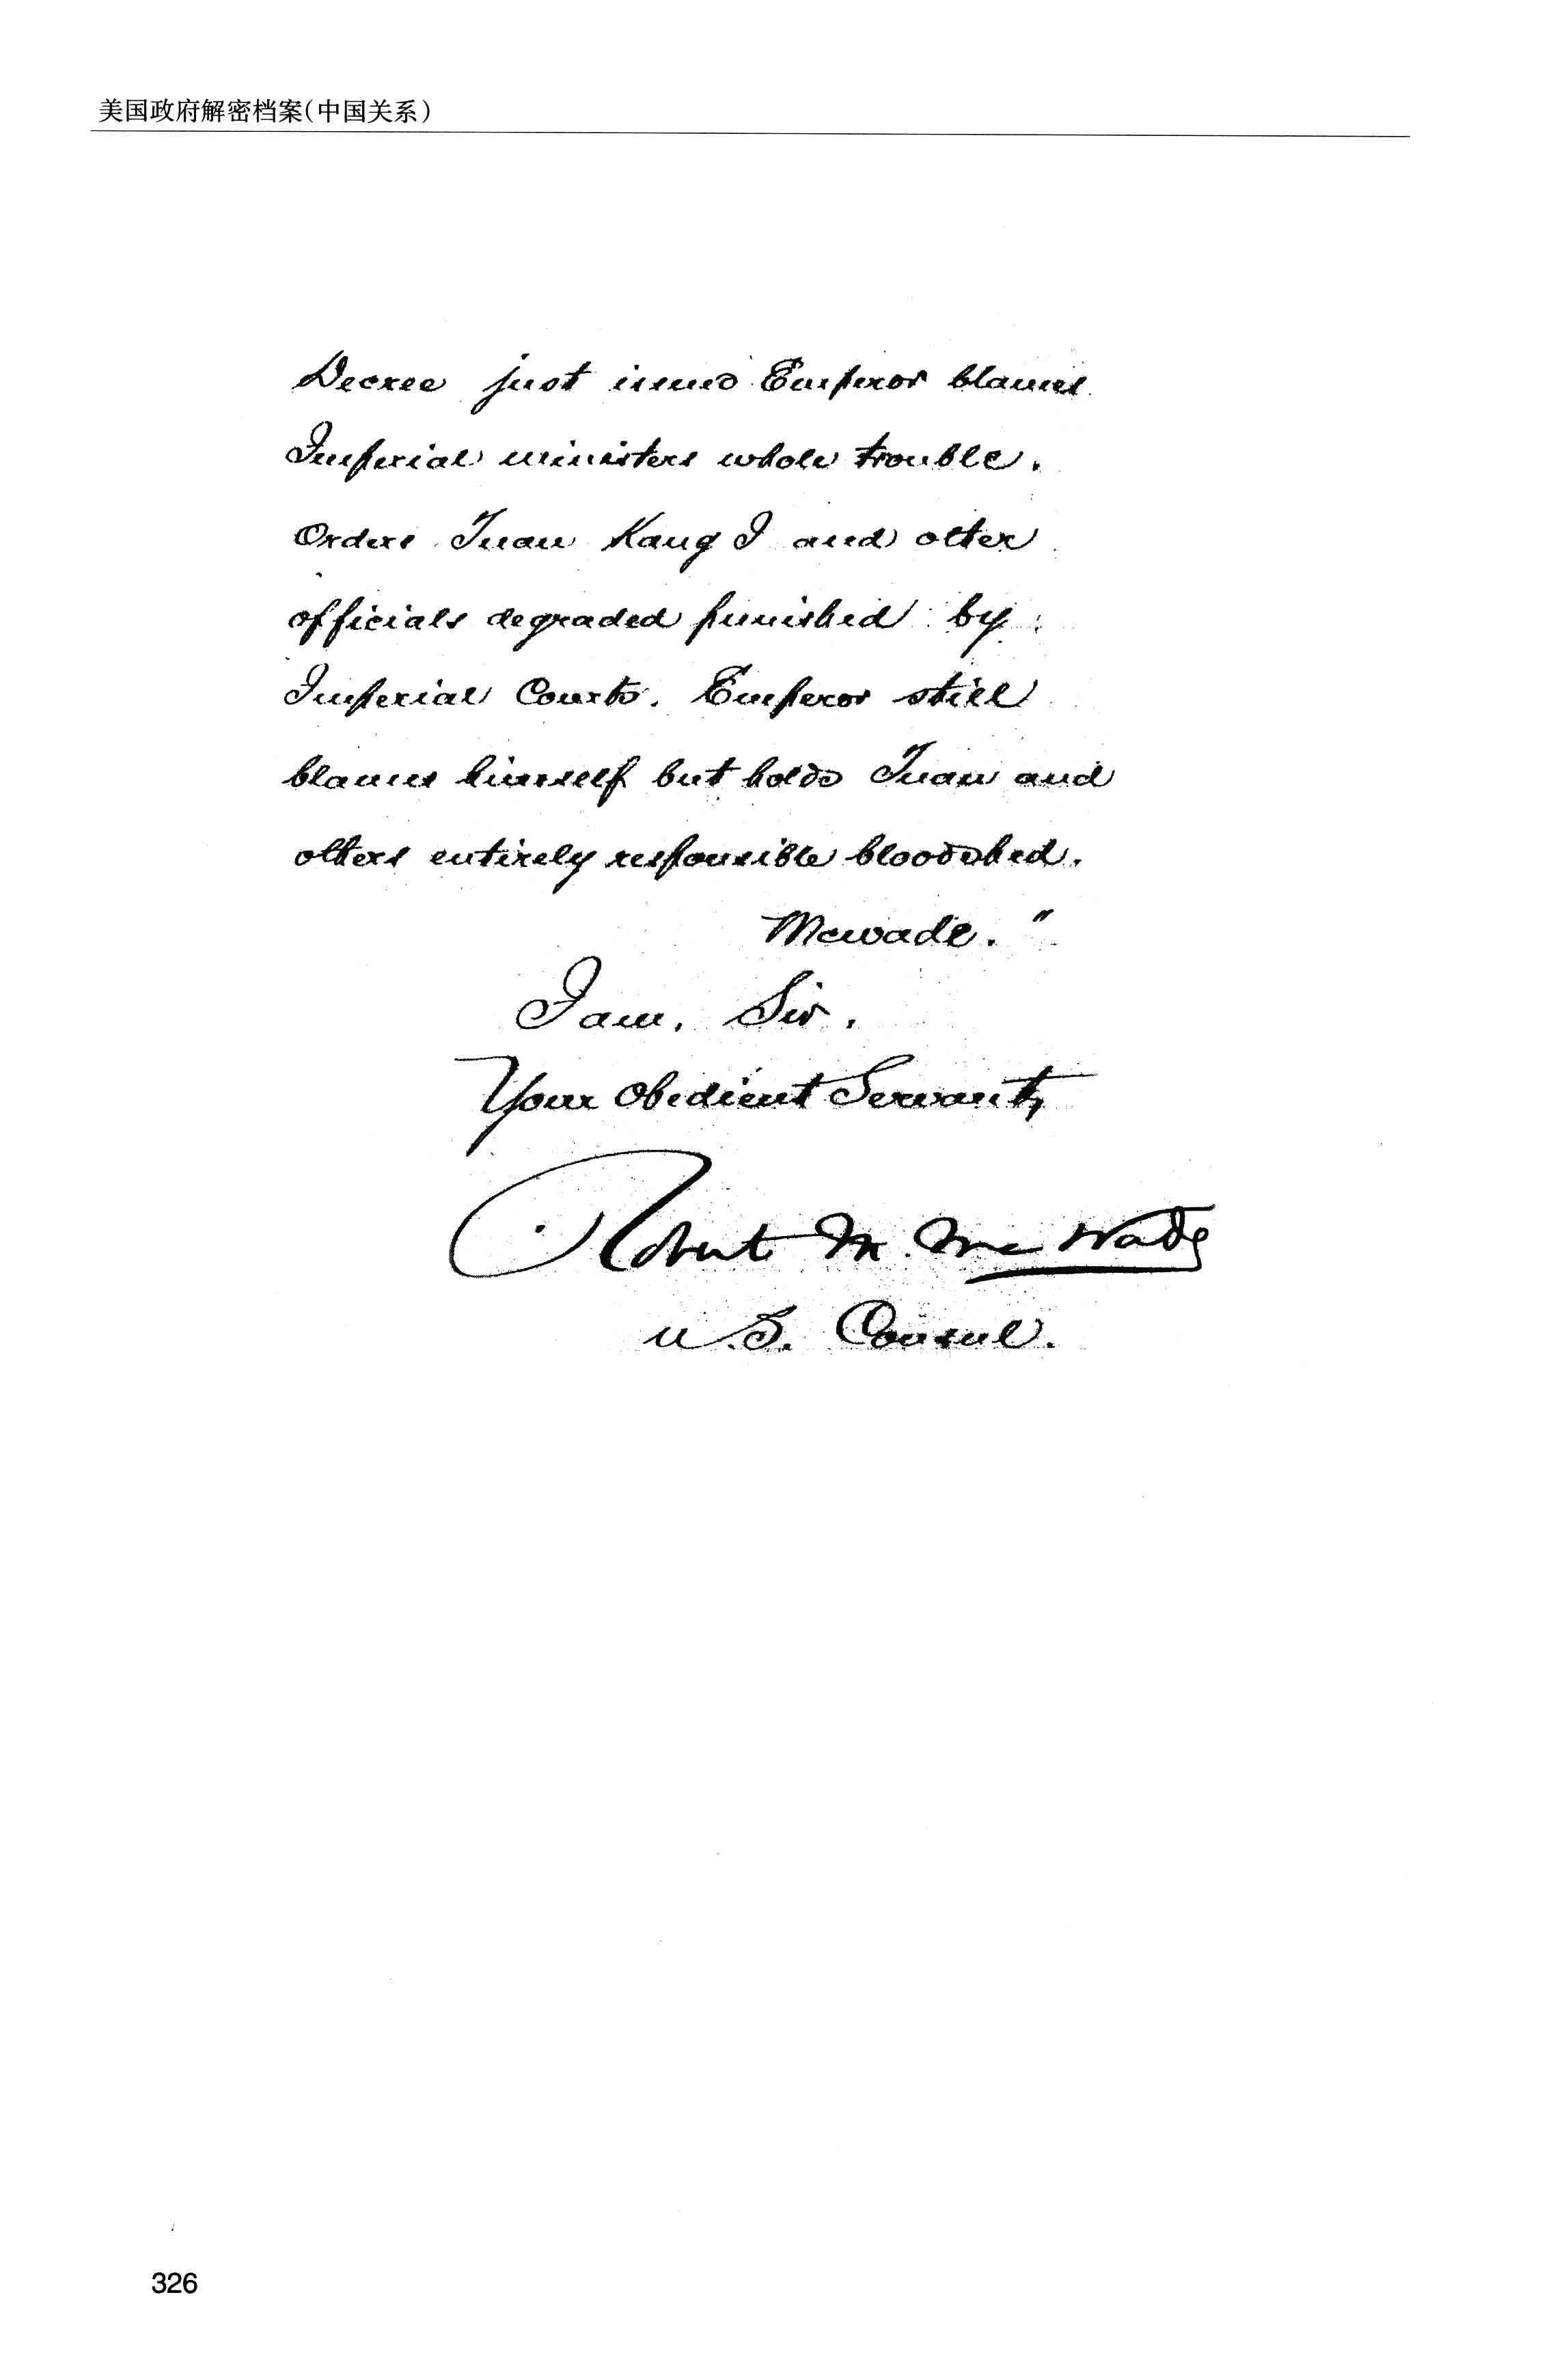 美国政府解密档案(中国关系)
Decree just issued Emperor blames
Imperial ministers whole trouble.
Orders Tuan Kang I and other
officials degraded punished by
Imperial Courts. Emperor still
blames himself but holds Tuan and
others entirely responsible bloodshed.
McWade."
I am, Sir,
Your Obedient Servant,
Robert M. McWade
U.S. Consul.
326